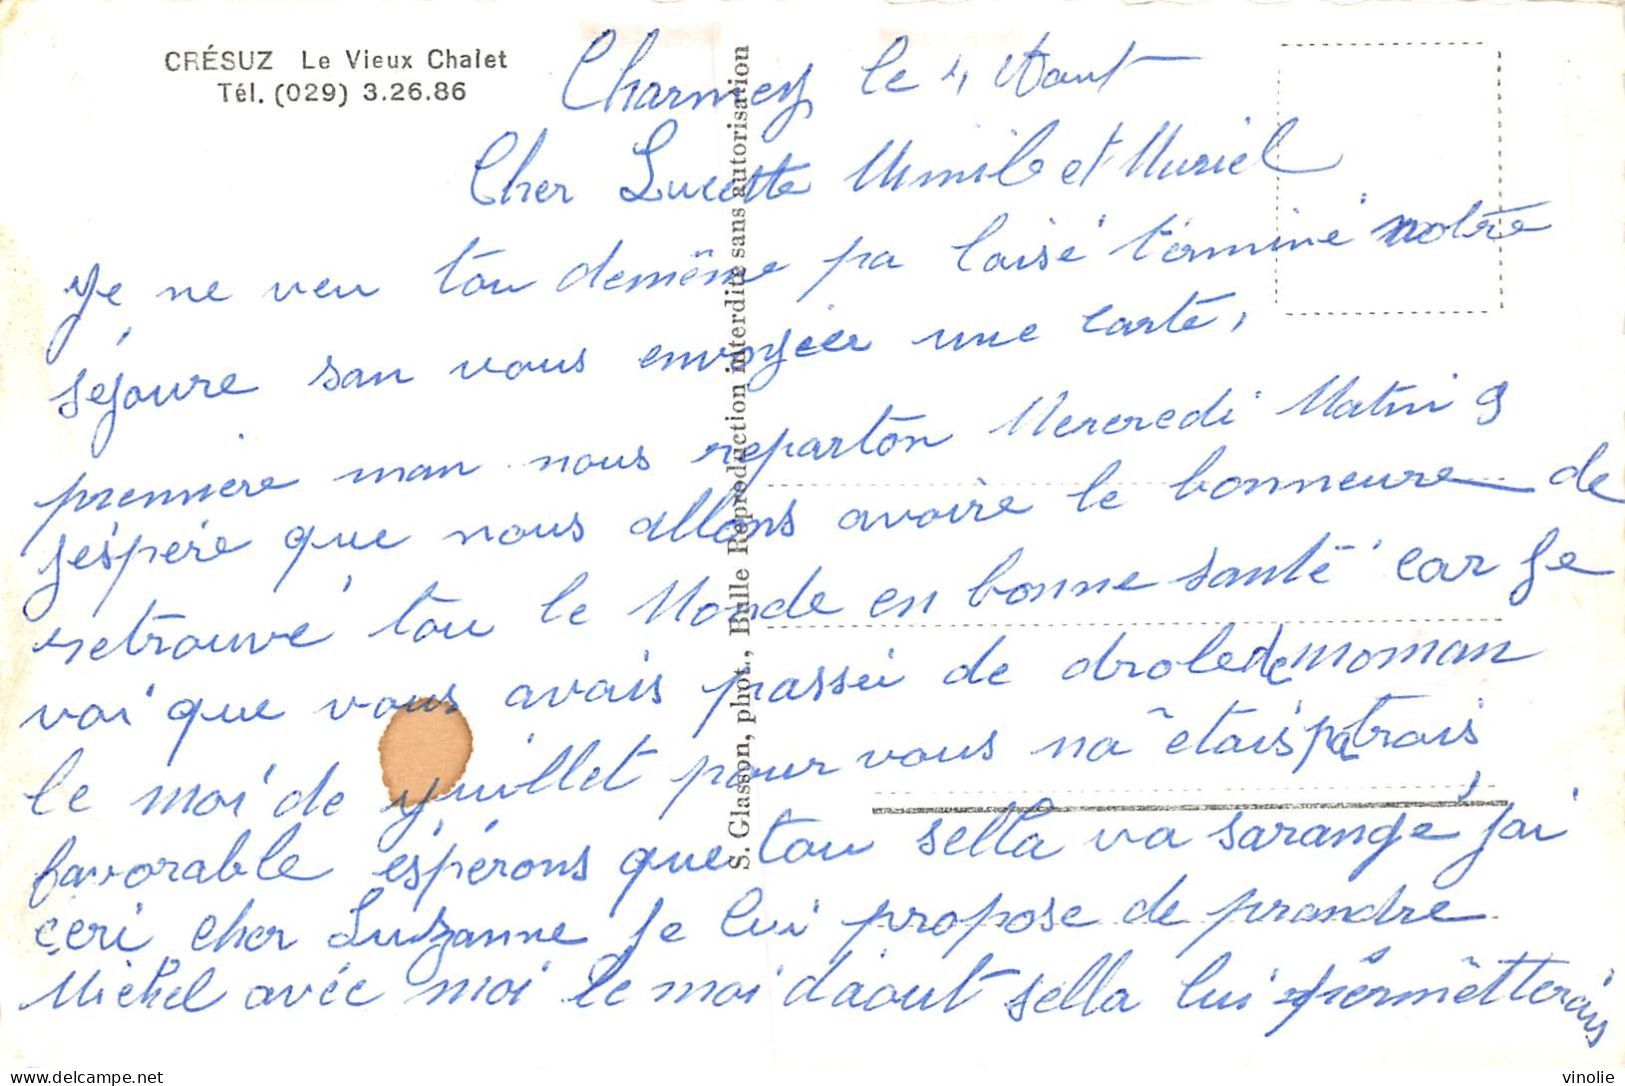 CRÉSUZ Le Vieux Chalet
Tél. (029) 3.26.86
Charmey le 4 Aout
Cher Lucette Mimile et Muriel
Je ne veu tou demême pa laisé términé notre
séjoure san vous envoyéer une carte,
première man nous reparton Mercredi Matin 9
j'espére que nous allons avoire le bonneure de
retrouvé tou le Monde en bonne santé car je
voi que vous avais passéi de drolede moman
le moi de juillet pour vous na êtais pa trais
favorable espérons que tou sella va sarangé j'ai
ecri cher Suzanne je lui propose de prandre
Michel avéc moi le moi daout sella lui permêtterais
S. Glasson, phot., Bulle Reproduction interdite sans autorisation
delcampe.net
vinolie